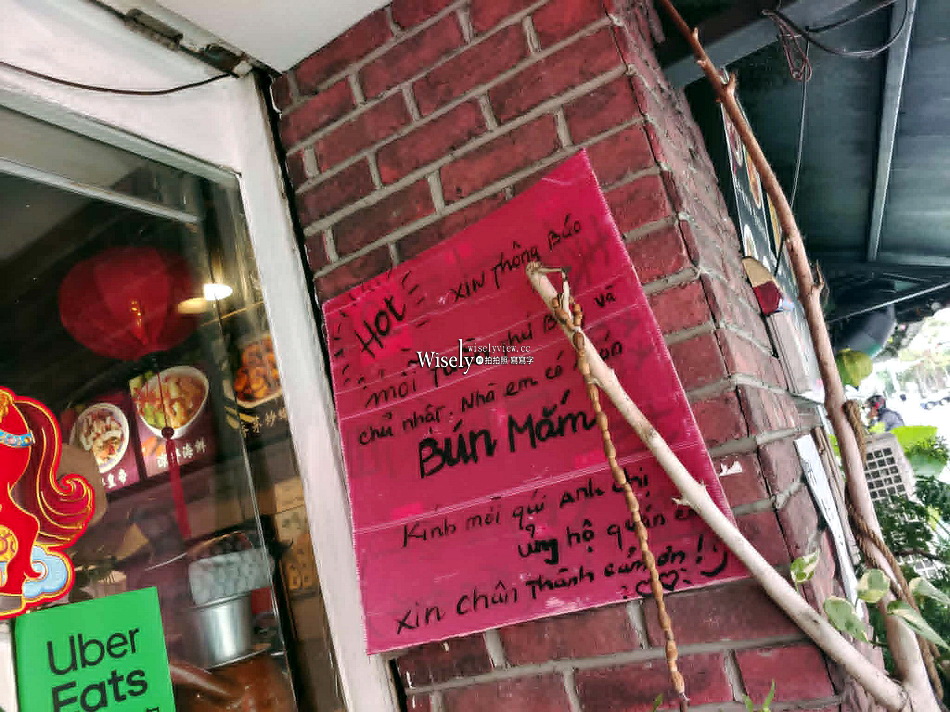 HOT
XIN Thông Báo
mỗi
chủ nhật. Nhà em có
Bún Mắm
Kính mời quí Anh chị
Ủng hộ quán
Xin chân Thành cảm ơn!
wiselyview.cc
Wisely
拍拍照·寫寫字
Uber
Eats